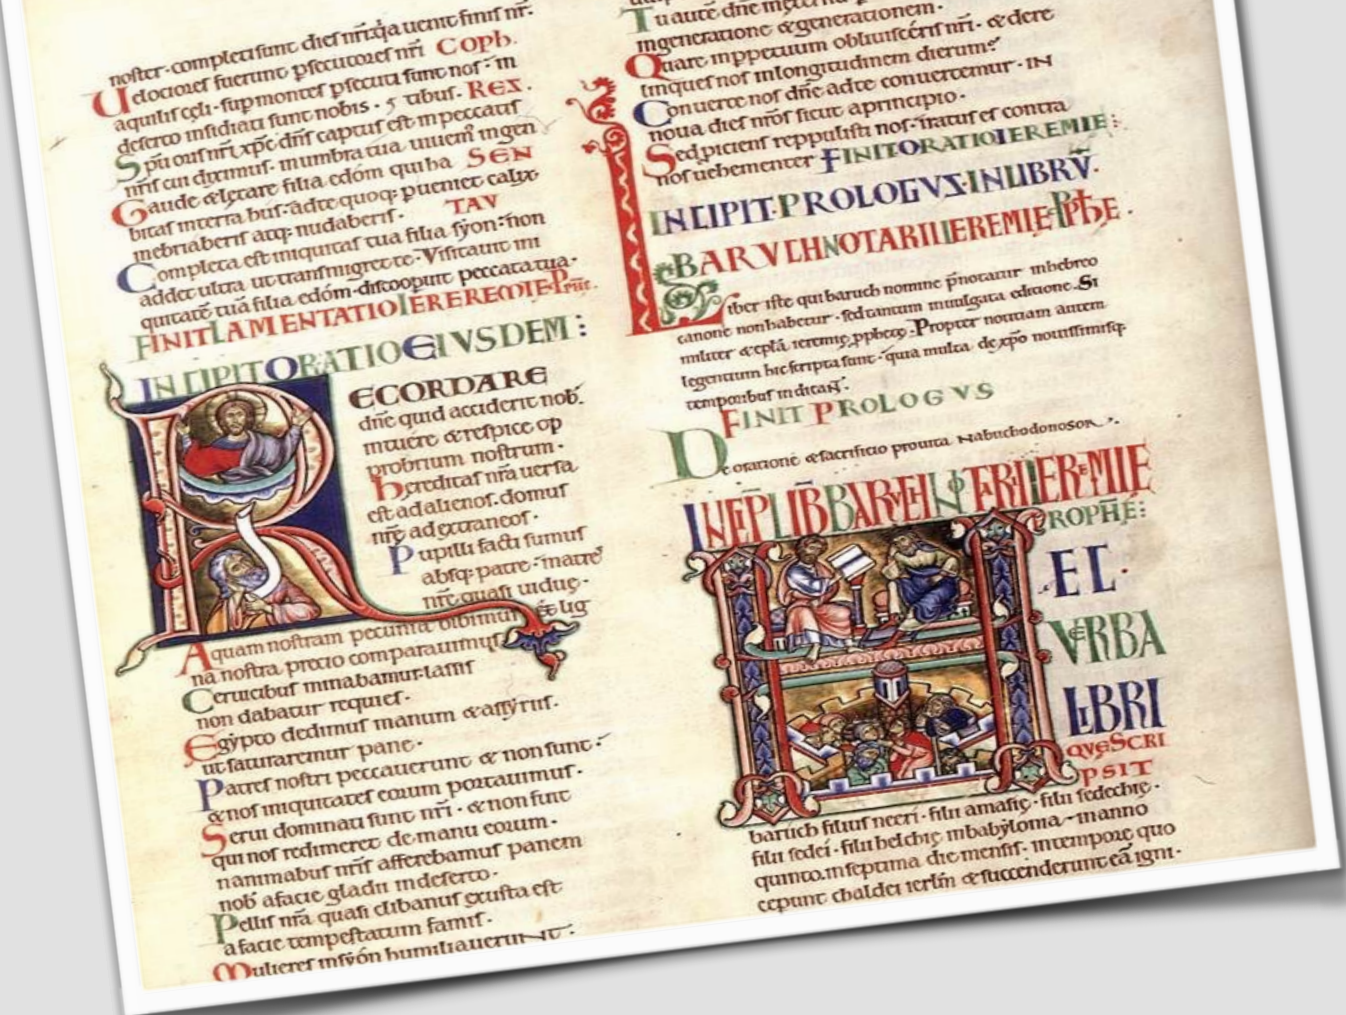 noster · completi sunt dies nr̄i q̇a uenit finis nr̄:
Uelociores fuerunt p̱secutores nr̄i Coph.
aquilis cęli · sup montes p̱secuti sunt nos · in
deserto insidiati sunt nobis · REX.
Sp̄u oris nr̄i xp̄c dn̄s captus est in peccatis
nr̄is cui diximus · in umbra tua uiuem̄ in gen
SEN
Gaude & lętare filia edóm quiha
bitas in terra hus · ad te quoq; pueniet calix
inebriaberis atq; nudaberis · TAV
Completa est iniquitas tua filia syon · non
addet ultra ut transmigret te · Visitauit ini
quitatē tuā filia edóm · discoopuit peccata tua ·
FINIT LAMENTATIO IEREREMIE
INCIPIT ORATIO EIVSDEM :
RECORDARE
dn̄e quid acciderit nob̄.
intuére & respice op
probrium nostrum ·
hereditas nr̄a uersa
est ad alienos · domus
nr̄e ad extraneos ·
Pupilli facti sumus
absq; patre · matre
nr̄e quasi uiduę ·
Aquam nostram pecunia bibimus & lig
na nostra precio comparauimus
Ceruicibus minabamur · lassis
non dabatur requies ·
Egypto dedimus manum & assyriis ·
ut saturaremur pane ·
Patres nostri peccauerunt & non sunt ·
& nos iniquitates eorum portauimus ·
Serui dominati sunt nr̄i · & non fuit
qui nos redimeret de manu eorum ·
In animabus nr̄is afferebamus panem
nob̄ a facie gladii in deserto ·
Pellis nr̄a quasi clibanus exusta est
a facie tempestatum famis ·
Mulieres in syón humiliauerunt ·
Tu autē dn̄e
in generatione & generationem ·
Quare in ppetuum obliuisceris nr̄i · & dere
linques nos in longitudinem dierum
Conuerte nos dn̄e ad te & conuertemur · IN
noua dies nr̄os sicut a principio ·
Sed piciens reppulisti nos · iratus es contra
nos uehementer FINIT ORATIO IEREMIE :
INCIPIT PROLOGVS IN LIBRV̄ ·
BARVCH NOTARII IEREMIE PPH̄E ·
Liber iste qui baruch nomine p̄notatur in hebreo
canone non habetur · sed tantum in uulgata editione · Si
militer & epl̄a ieremię pphetę · Propter notitiam autem
legentium hic scripta sunt · quia multa de xp̄o nouissimisq;
temporibus indicant ·
FINIT PROLOGVS
De oratione & sacrificio pro uita Nabuchodonosor ·
INCIP LIB BARVCH NOTARII IEREMIE
PROPHĒ :
ET
VERBA
LIBRI
QVE SCRI
PSIT
baruch filius neeri · filii amasię · filii sedechię ·
filii sedei · filii helchię in babylonia · in anno
quinto · in septima die mensis · in tempore quo
cepunt chaldei ierłm & succenderunt eā igni ·